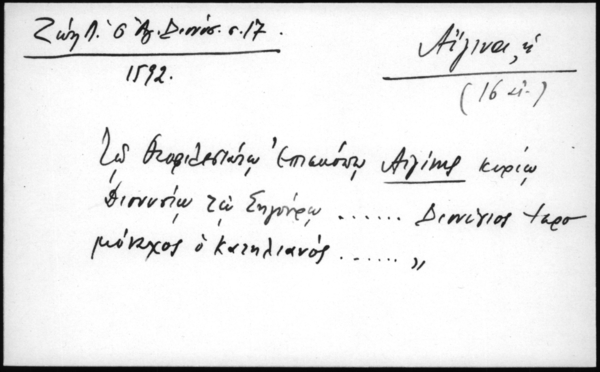 Ζώη Λ. ὁ Ἅγ. Διονύσ. σ. 17.
1592.
Αἴγινα, ἡ
(16 αἰ.)
Τῷ θεοφιλεστάτῳ Ἐπισκόπῳ Αἰγίνης κυρίῳ
Διονυσίῳ τῷ Σιγούρῳ ...... Διονύσιος ἱερο
μόναχος ὁ Κατηλιανός ...... „